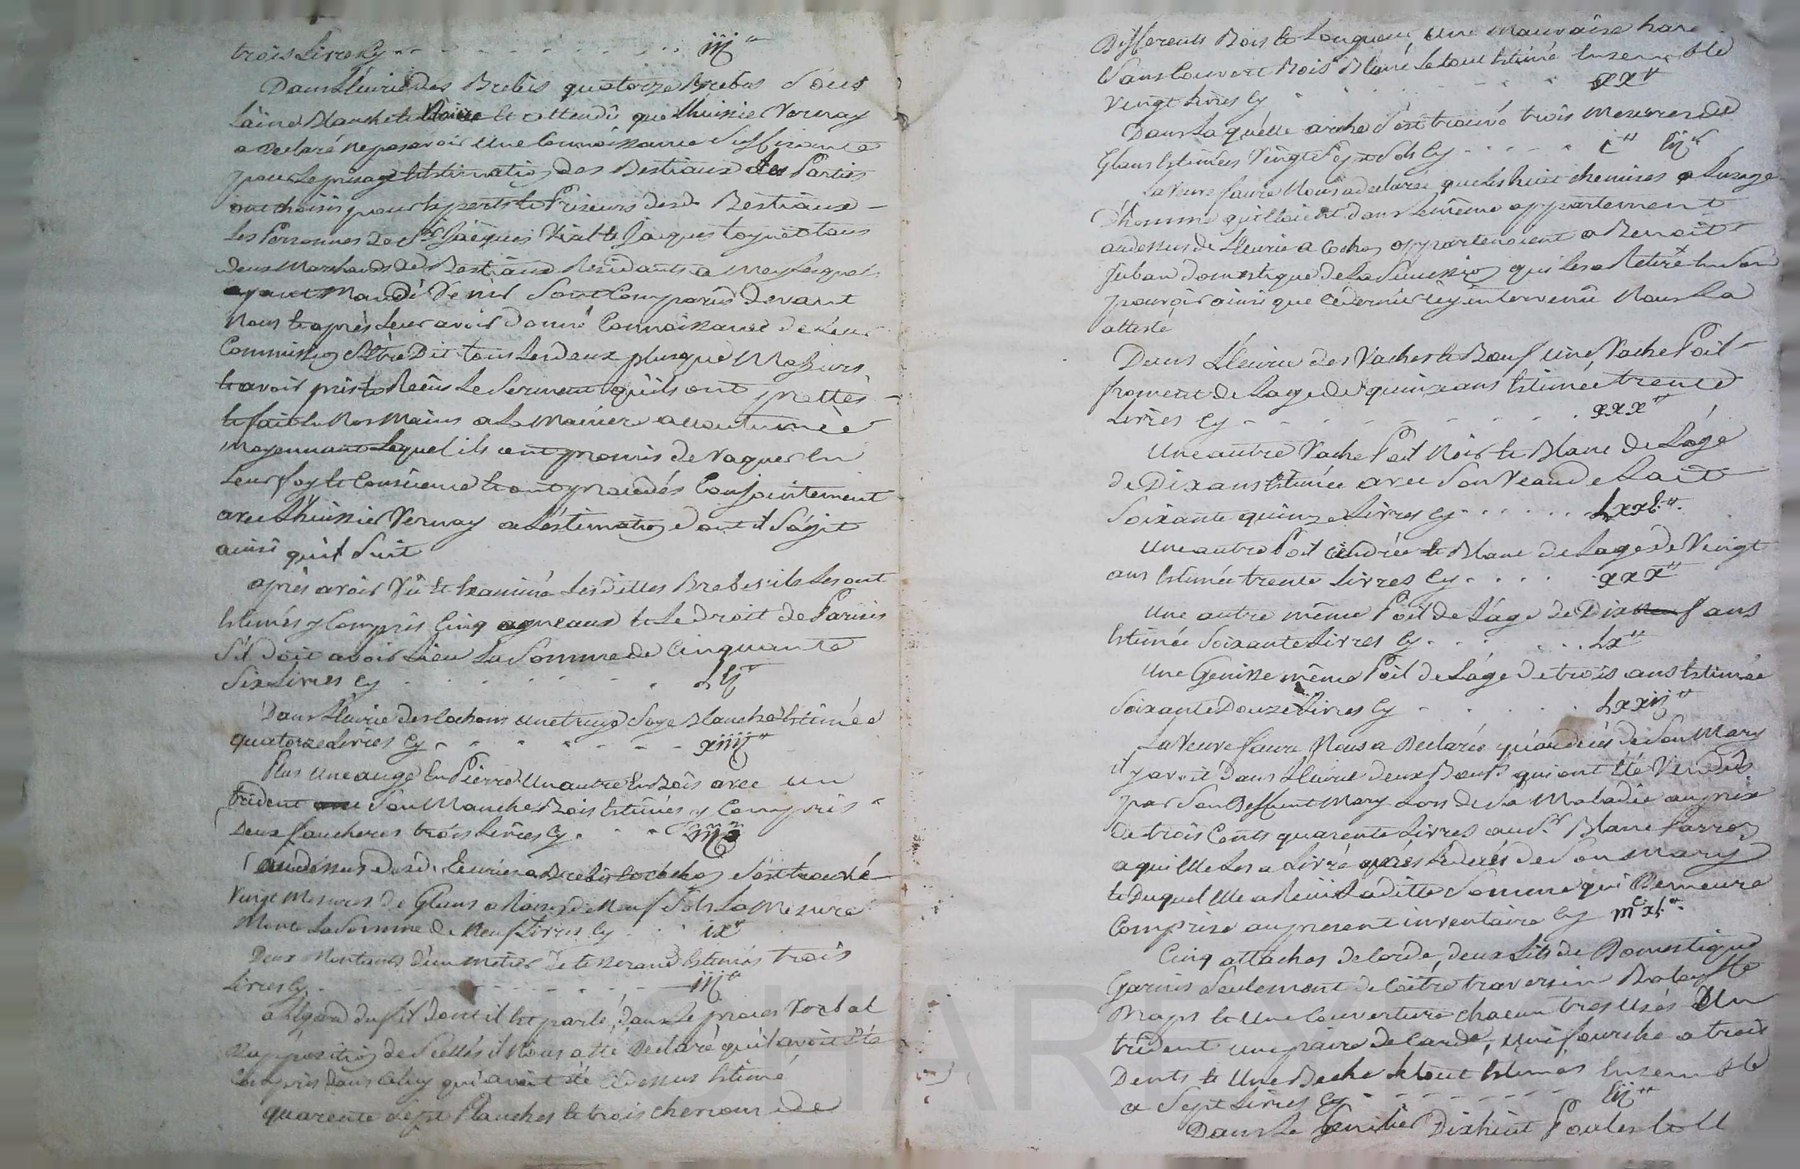 trois Livres Cy - - - - - - - - iij"
Dans L'Ecurie des Brebis quatorze Brebis Sous
Laine Blanche et Noire et attendu que L'huissier Vernay
a Declaré ne pas avoir Une Connoissance Suffisante
pour Le prisage Estimation des Bestiaux Les Parties
ont choisis pour Experts et Priseurs desd. Bestiaux -
Les Personnes de Srs Jacques Vial et Jacques toutous
deux Marchands de Bestiaux Residants a
ayant Mandé Venir Sont Comparûs devant
Nous et apres Leur avoir donné Connoissance de Leur
Commission Etre Dit tous Les deux plus que Majeurs
et avoir pris et Reçûs Le Serment qu'ils ont prettés
et fait En Nos Mains a La Maniere accoutumée
Moyennant Lequel ils ont promis de Vaquer En
Leur foy et Conscience et ont procedés Conjointement
avec L'huissier Vernay a L'estimation dont il S'agit
ainsi quil Suit
apres avoir Vû et Examiné Lesdittes Brebis ils Les ont
Estimés y Compris Cinq agneaux et Le droit de
S'il doit avoir Lieu La Somme de Cinquante
Six Livres Cy - - - - - - - Lvj"
Dans L'Ecurie des Cochons une truye Soye Blanche Estimée
quatorze Livres Cy - - - - - - xiiij"
Plus Une auge En Pierre Un autre En Bois avec un
trident Son Manche Bois Estimés y Compris
Deux faucheres trois Livres Cy - - - iij"
au dessus desd. Ecuries a Brebis et Cochons S'est trouvé
Vingt Mesures de Glans a Raison de Neuf Sols La Mesure
Monte La Somme de Neuf Livres Cy - - ix"
Deux Montants d'un métier de tisserand Estimés trois
Livres Cy - - - - - - - - iij"
a L'Egard du fil dont il Est parlé dans Le procès Verbal
D'apposition de Scellés il Nous a été Declaré qu'il avoit Eté
Compris dans Celuy qui avoit été Cy dessus Estimé
quarente Sept Planches et trois chevrons de
Differents Bois et Longueur Une Mauvaise
Sans Couvert Bois Blanc Le tout Estimé Ensemble
Vingt Livres Cy - - - - - - xx"
Dans La quelle arche s'est trouvé trois Mesures de
Glans Estimées Vingt Sept Sols Cy - - - - i" vij s
La Veuve faure Nous a declaré que Les huit chemises a Lusage
D'homme qui Etoient dans Le même appartement
au dessus de L'Ecurie a Cochons appartenoient a Benoit
Juban domestique de La Succession qui Les a Retiré En Son
pouvoir ainsi que Ce dernier Icy intervenû Nous L'a
attesté
Dans L'Ecurie des Vaches et Boeufs une Vache Poil
froment de L'age de quinze ans Estimée trente
Livres Cy - - - - - - - - xxx"
Une autre Vache Poil Noir et Blanc de L'age
de Dix ans Estimée avec Son Veau de Lait
Soixante quinze Livres Cy - - - - - Lxxv"
Une autre Poil Cendrée et Blanc de L'age de Vingt
ans Estimée trente Livres Cy - - - - xxx"
Une autre même Poil de L'age de Dix neuf ans
Estimée Soixante Livres Cy - - - - Lx"
Une Genisse même Poil de L'age de trois ans Estimée
Soixante Douze Livres Cy - - - - - Lxxij"
La Veuve faure Nous a Declaré qu'au décès de Son Mary
il y avoit dans L'Ecurie deux Boeufs qui ont Eté Vendus
par Son Deffunt Mary Lors de Sa Maladie au prix
de trois Cents quarente Livres au Sr. Blanc
a qui Elle Les a Livré après Le décès de Son Mary
et Duquel Elle a Reçû Laditte Somme qui Demeure
Comprise au present inventaire Cy iijc xL"
Cinq attaches de Corde, deux Lits de Domestique
Garnis Seulement de Coitre traversin
Draps et Une Couverture chacun tres Usés Un
trident une paire de Carde, Une fourche a trois
Dents et Une Beche Le tout Estimés Ensemble
a Sept Livres Cy - - - - - - - vij"
Dans Le fenier Dixhuit Poules et Un